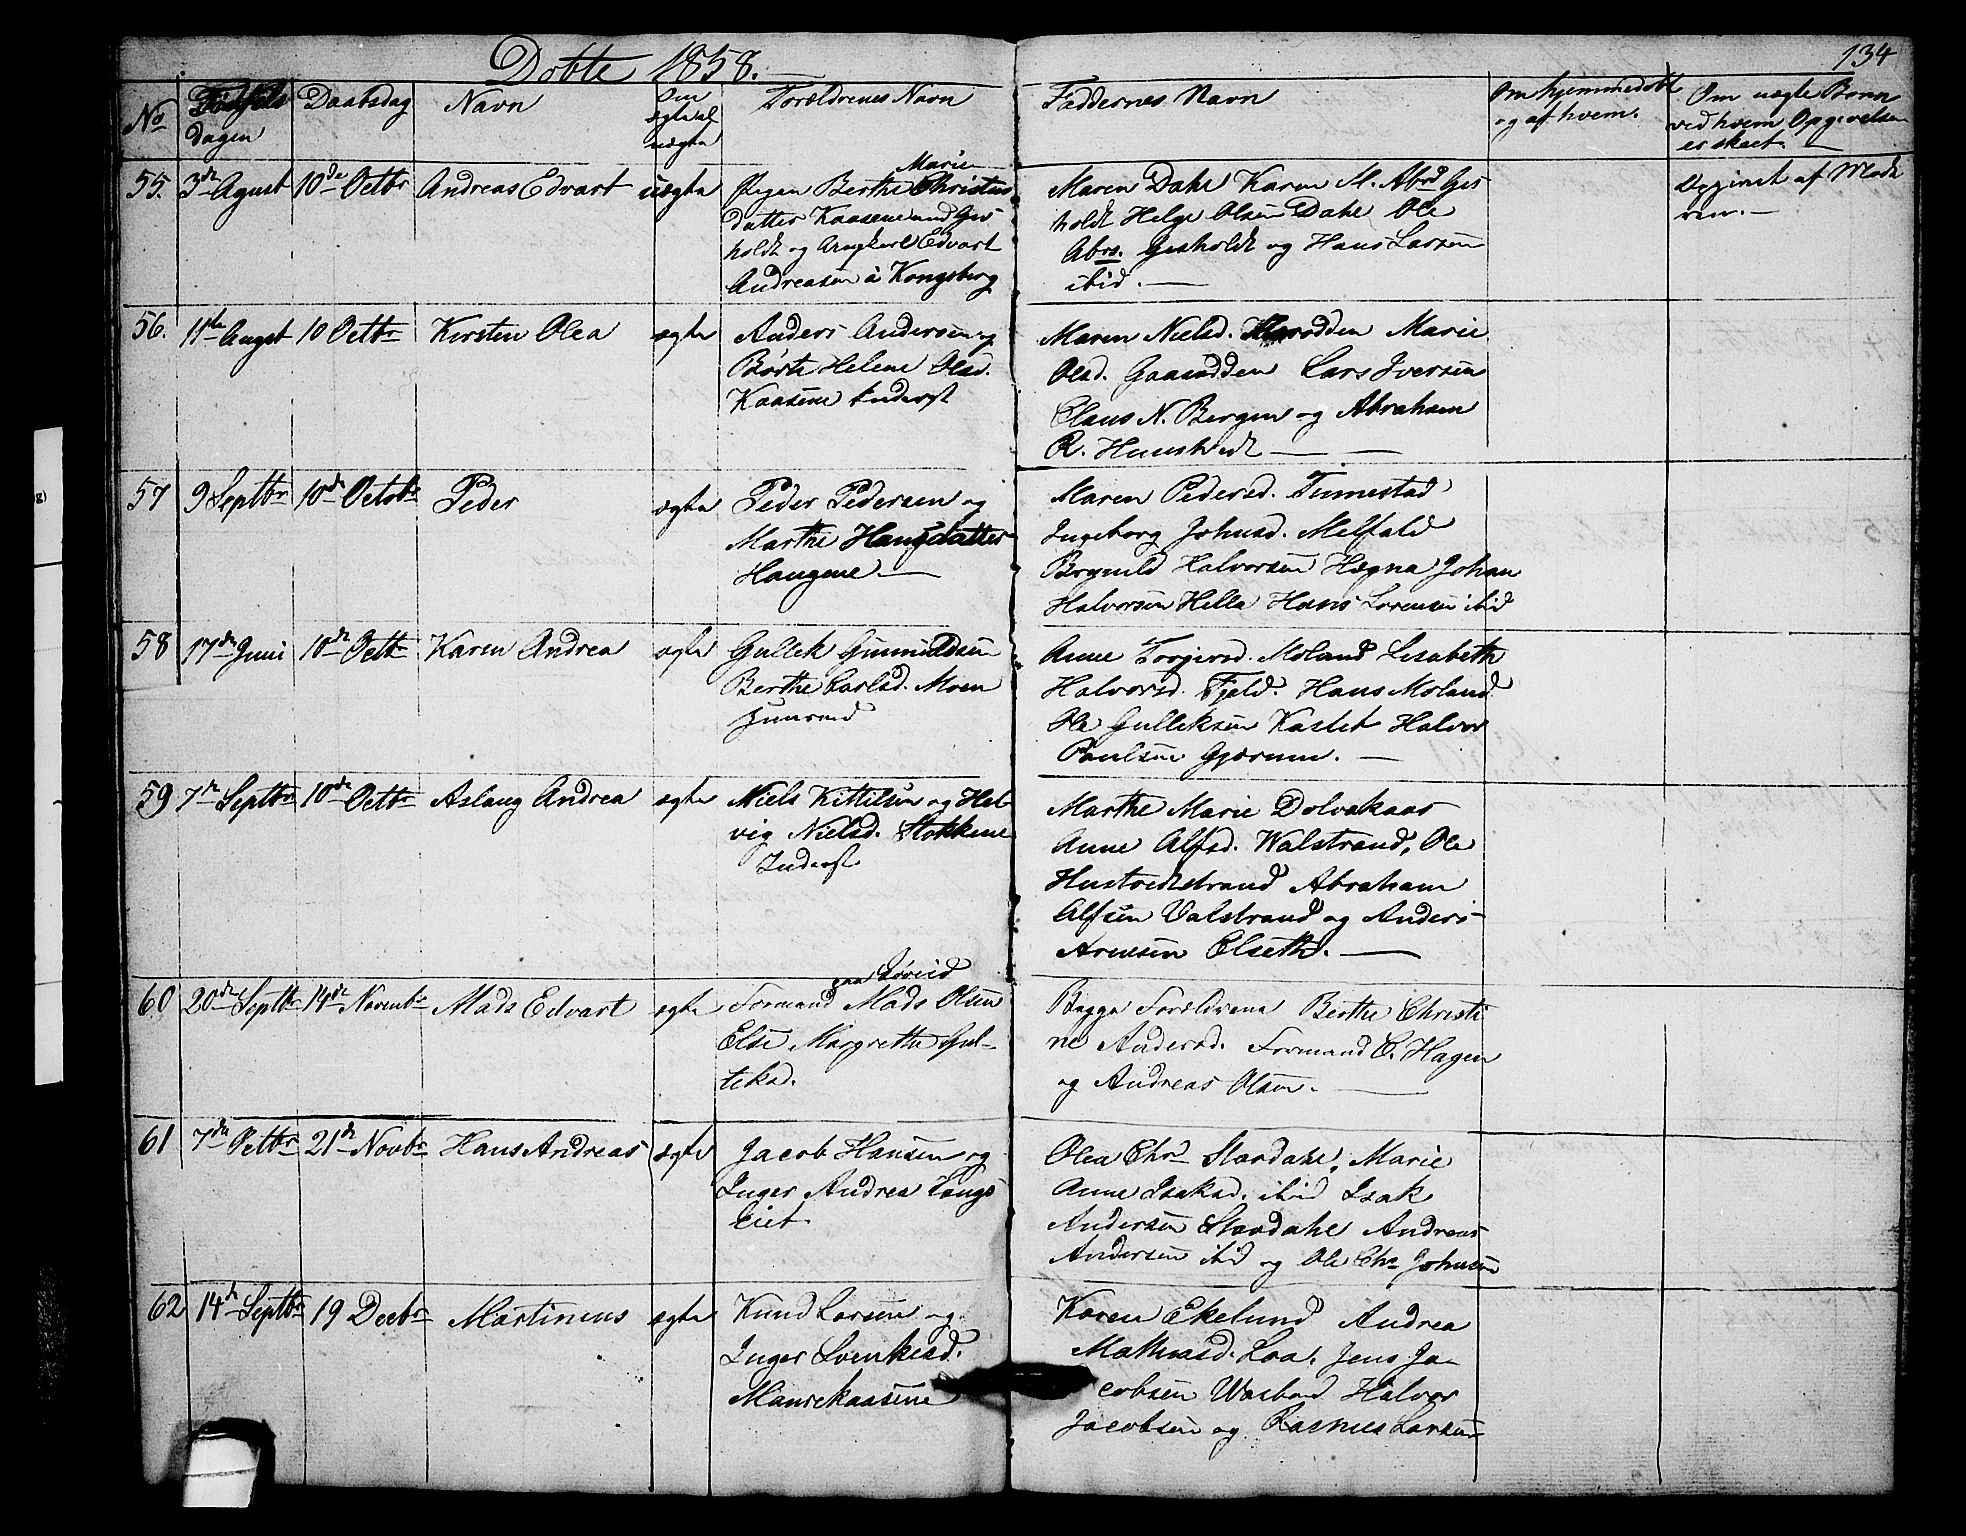 Døbte 1858.
134
No
Fødsels
dagen
Daabsdag
Navn
Om
ægte el
uægte
Forældrenes Navn
Faddernes Navn
Om hjemmedøbt
og af hvem.
Om uægte Børn
ved hvem Opgivelsen
er skeet.
55. 3de Agust 10de Octbr Andreas Edvart uægte
Marie
Pigen Berthe Christens
datter Kaasene und Ges
holdt og Ungkarl Edvart
Andreasen à Kongsberg
Maren Dahl Karen M. Abrd Ges
holdt Helge Olsen Dahl Ole
Abrs. Gesholdt og Hans Larsen
ibid.
Opgivet af Mode
ren.
56. 11te Augst 10 Octbr Kirsten Olea ægte
Anders Andersen og
Børte Helene Olsd.
Kaasene Inderst
Maren Nielsd. Marie
Olsd. Lars Iversen
Claus N. Bergen og Abraham
R.
57 9 Septbr 10de Octobr Peder ægte
Peder Pedersen og
Marthe Hansdatter
Haugene
Maren Pedersd. Tinnestad
Ingeborg Johnsd. Melfald
Brynild Halvorsen Hægna Johan
Halvorsen Hella Hans Lorensen ibid
58 17de Juni 10de Octbr Karen Andrea ægte
Gullek Gunnuldsen
Berthe Carlsd. Moen
Anne Torjersd. Moland Lisabeth
Halvorsd. Fjeld. Hans Moland
Ole Gulleksen Kastet Halvor
Poulsen Gjærum.
59 7de Septbr 10de Octbr Aslaug Andrea ægte
Niels Kittilsen og Hel
vig Nielsd. Stokkene
Inderst
Marthe Marie Dolvakaas
Anne Alfsd. Walstrand, Ole
Hustvedtstrand Abraham
Alfsen Valstrand og Anders
Arnesen Elseth.
60 20de Septbr 14de Novembr Mads Edvart ægte
paa
Formand Mads Olsen
Else Margrethe Gul
leksd.
Begge Forældrene Berthe Christi
ne Andersd. Formand C. Hagen
og Andreas Olsen.
61 7de Octbr 21de Novbr Hans Andreas ægte
Jacob Hansen og
Inger Andrea Langs
eiet
Olea Chr. Stordahl, Marie
Anne Isaksd. ibid Isak
Andersen Stordahl Andreas
Andersen ibid og Ole Chr. Johnsen
62 14de Septbr 19 Decbr Martineus ægte
Knud Larsen og
Inger Svenkesd.
Maurekaasene
Karen Ekelund Andrea
Mathiasd. Loa. Jens Ja
cobsen Wasbond Halvor
Jacobsen og Rasmus Larsen